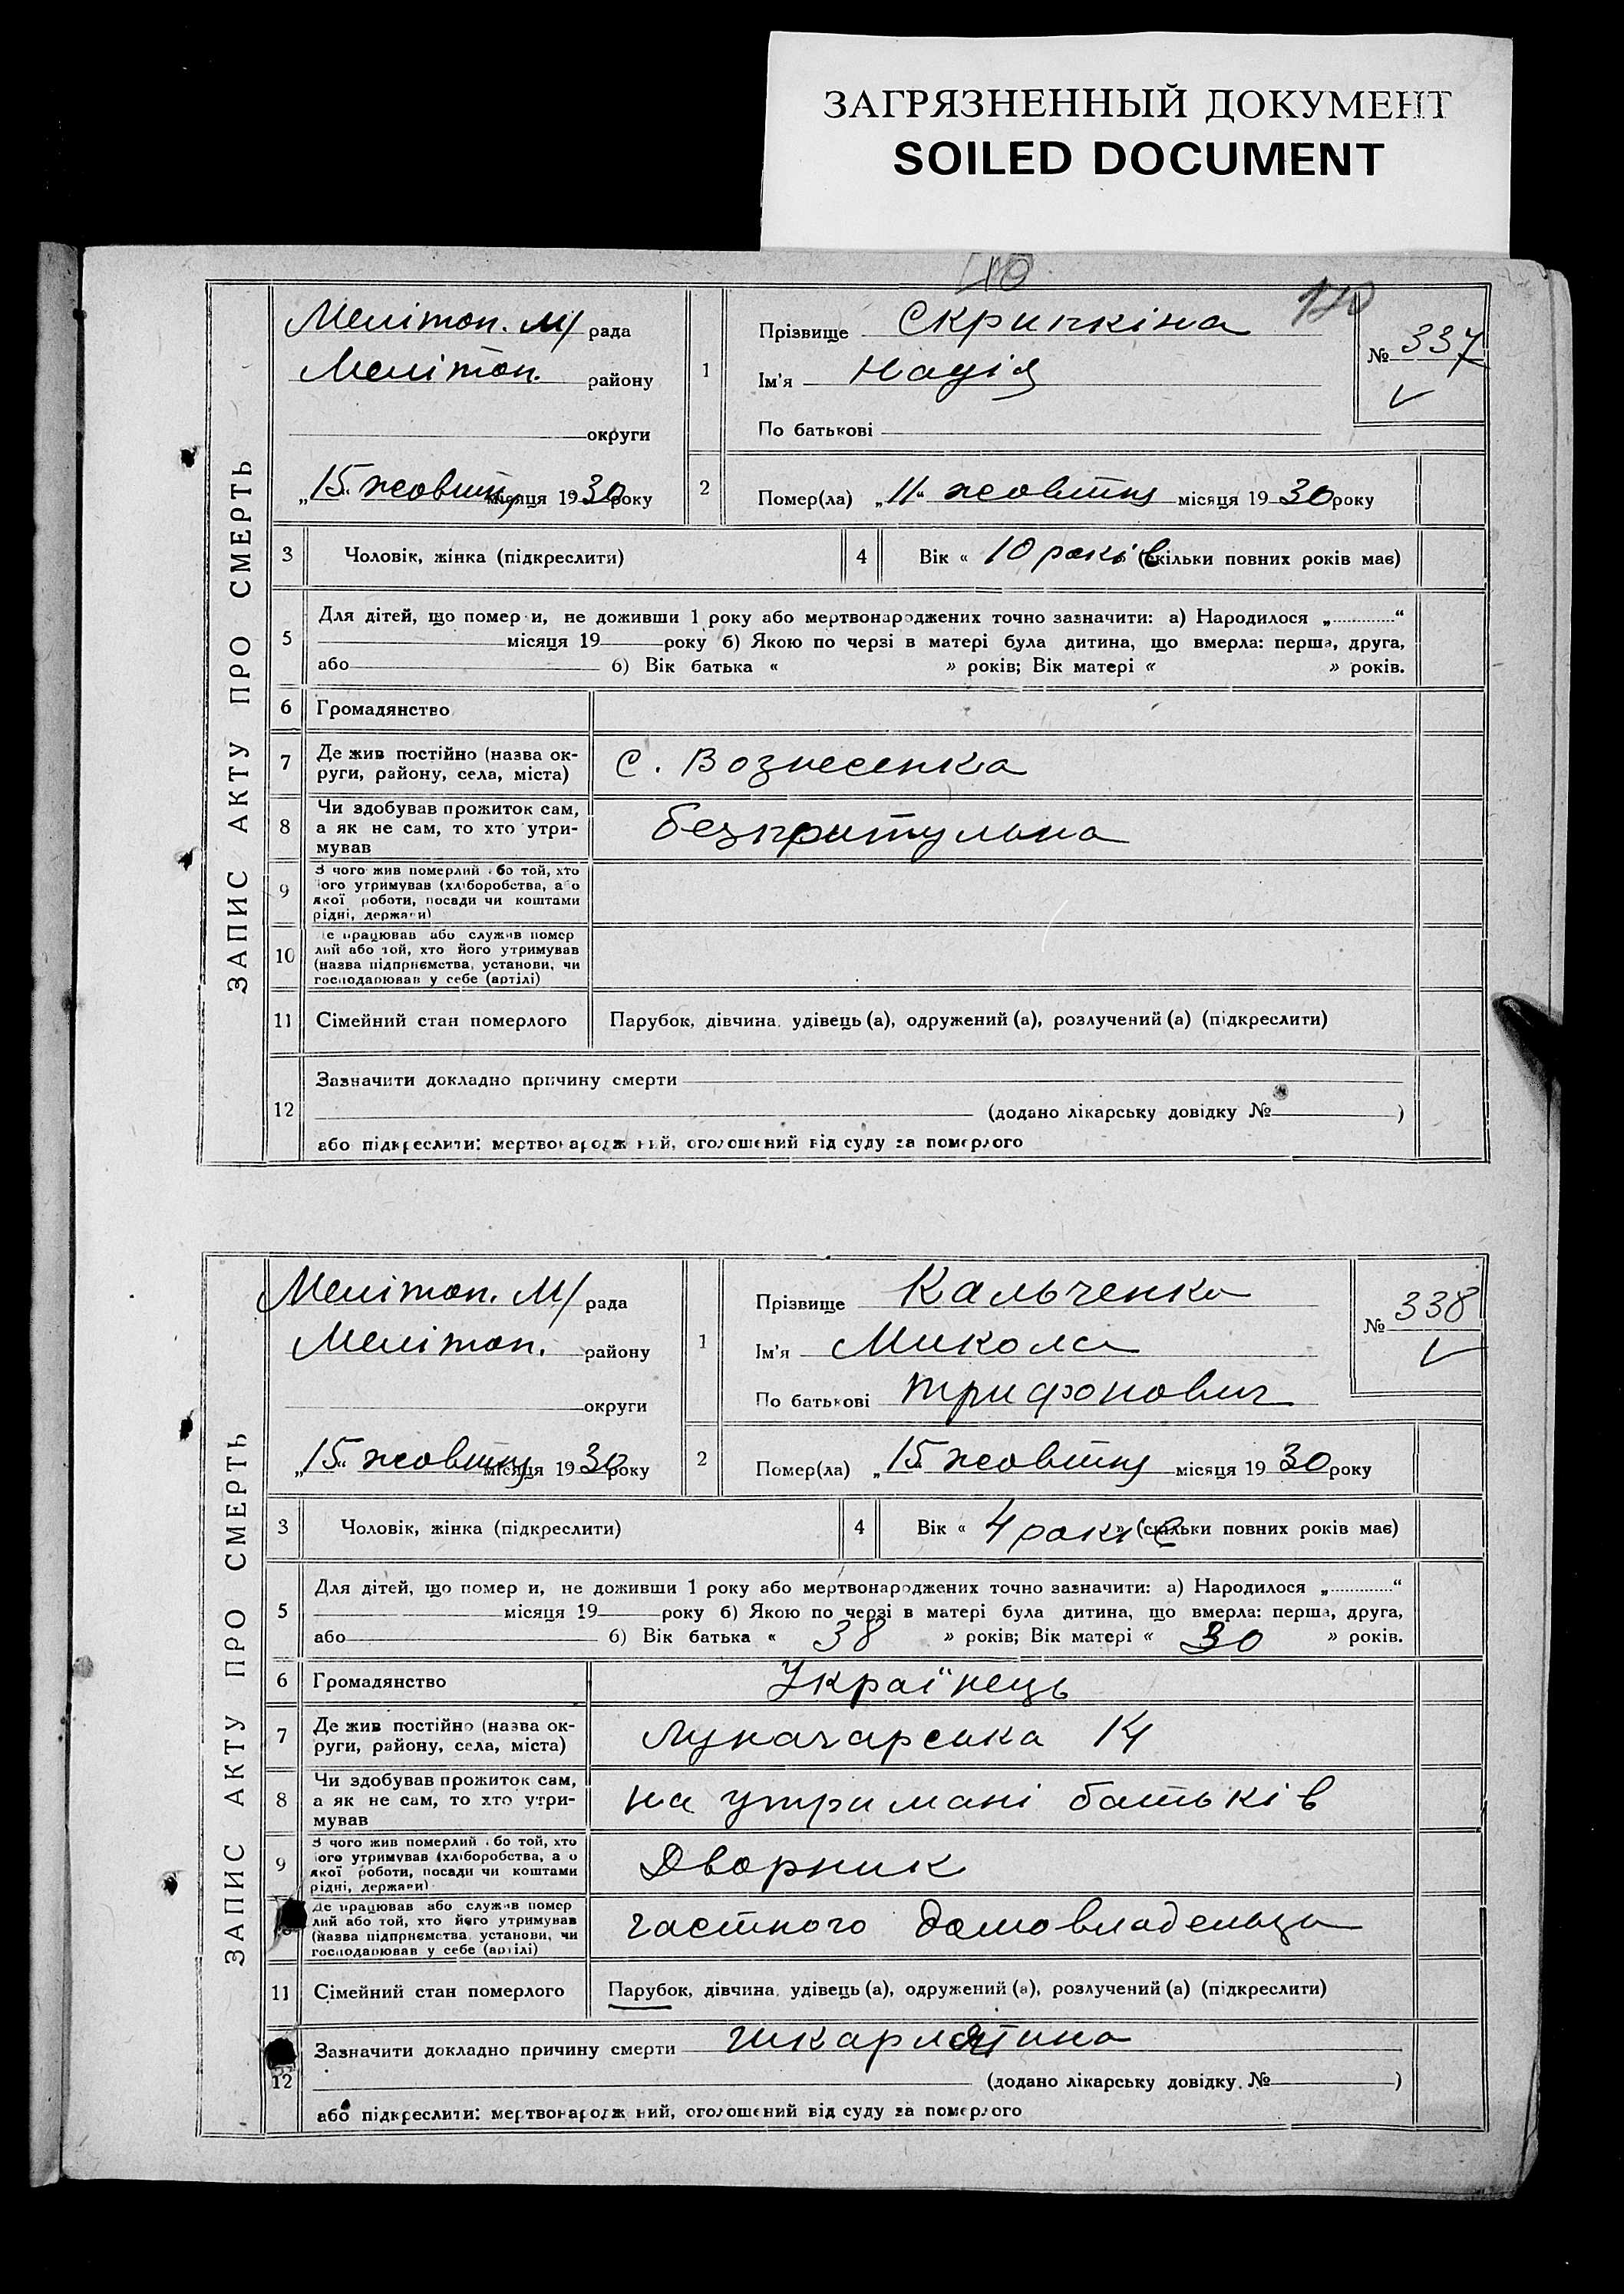 ЗАГРЯЗНЕННЫЙ ДОКУМЕНТ
SOILED DOCUMENT
ЗАПИС АКТУ ПРО СМЕРТЬ
Меліmоп. м/ рада
Меліmоп. району
округи
„15“ жовтня місяця 1930 року
1
Прізвище Скрипкіна
Ім'я Надія
По батькові
120
№ 337
2
Помер(ла) „11“ жовтня місяця 1930 року
3 Чоловік, жінка (підкреслити)
4 Вік « 10 років » (скільки повних років має)
5
Для дітей, що помер и, не доживши 1 року або мертвонароджених точно зазначити: а) Народилося „............“
місяця 19 року б) Якою по черзі в матері була дитина, що вмерла: перша, друга,
або б) Вік батька « » років; Вік матері « » років.
6 Громадянство
7 Де жив постійно (назва ок-
руги, району, села, міста)
с. Вознесенка
8 Чи здобував прожиток сам,
а як не сам, то хто утри-
мував
безпритульна
9 З чого жив померлий або той, хто
його утримував (хліборобства, або
якої роботи, посади чи коштами
рідні, держави)
10 Де працював або служив помер
лий або той, хто його утримував
(назва підприємства, установи, чи
господарював у себе (артілі)
11 Сімейний стан померлого Парубок, дівчина, удівець (а), одружений (а), розлучений (а) (підкреслити)
12 Зазначити докладно причину смерти
(додано лікарську довідку № )
або підкреслити: мертвонароджений, оголошений від суду за померлого
ЗАПИС АКТУ ПРО СМЕРТЬ
Меліmоп. м/ рада
Меліmоп. району
округи
„15“ жовтня місяця 1930 року
1
Прізвище Кальченко
Ім'я Микола
По батькові Трифонович
№ 338
2
Помер(ла) „15“ жовтня місяця 1930 року
3 Чоловік, жінка (підкреслити)
4 Вік « 4 років » (скільки повних років має)
5
Для дітей, що помер и, не доживши 1 року або мертвонароджених точно зазначити: а) Народилося „............“
місяця 19 року б) Якою по черзі в матері була дитина, що вмерла: перша, друга,
або б) Вік батька « 38 » років; Вік матері « 30 » років.
6 Громадянство Украінець
7 Де жив постійно (назва ок-
руги, району, села, міста)
Луначарська 14
8 Чи здобував прожиток сам,
а як не сам, то хто утри-
мував
на утримані батьків
9 З чого жив померлий або той, хто
його утримував (хліборобства, або
якої роботи, посади чи коштами
рідні, держави)
Дворник
Де працював або служив помер
лий або той, хто його утримував
(назва підприємства, установи, чи
господарював у себе (артілі)
частного домовладельца
11 Сімейний стан померлого Парубок, дівчина, удівець (а), одружений (а), розлучений (а) (підкреслити)
12 Зазначити докладно причину смерти шкарлятина
(додано лікарську довідку № )
або підкреслити: мертвонароджений, оголошений від суду за померлого